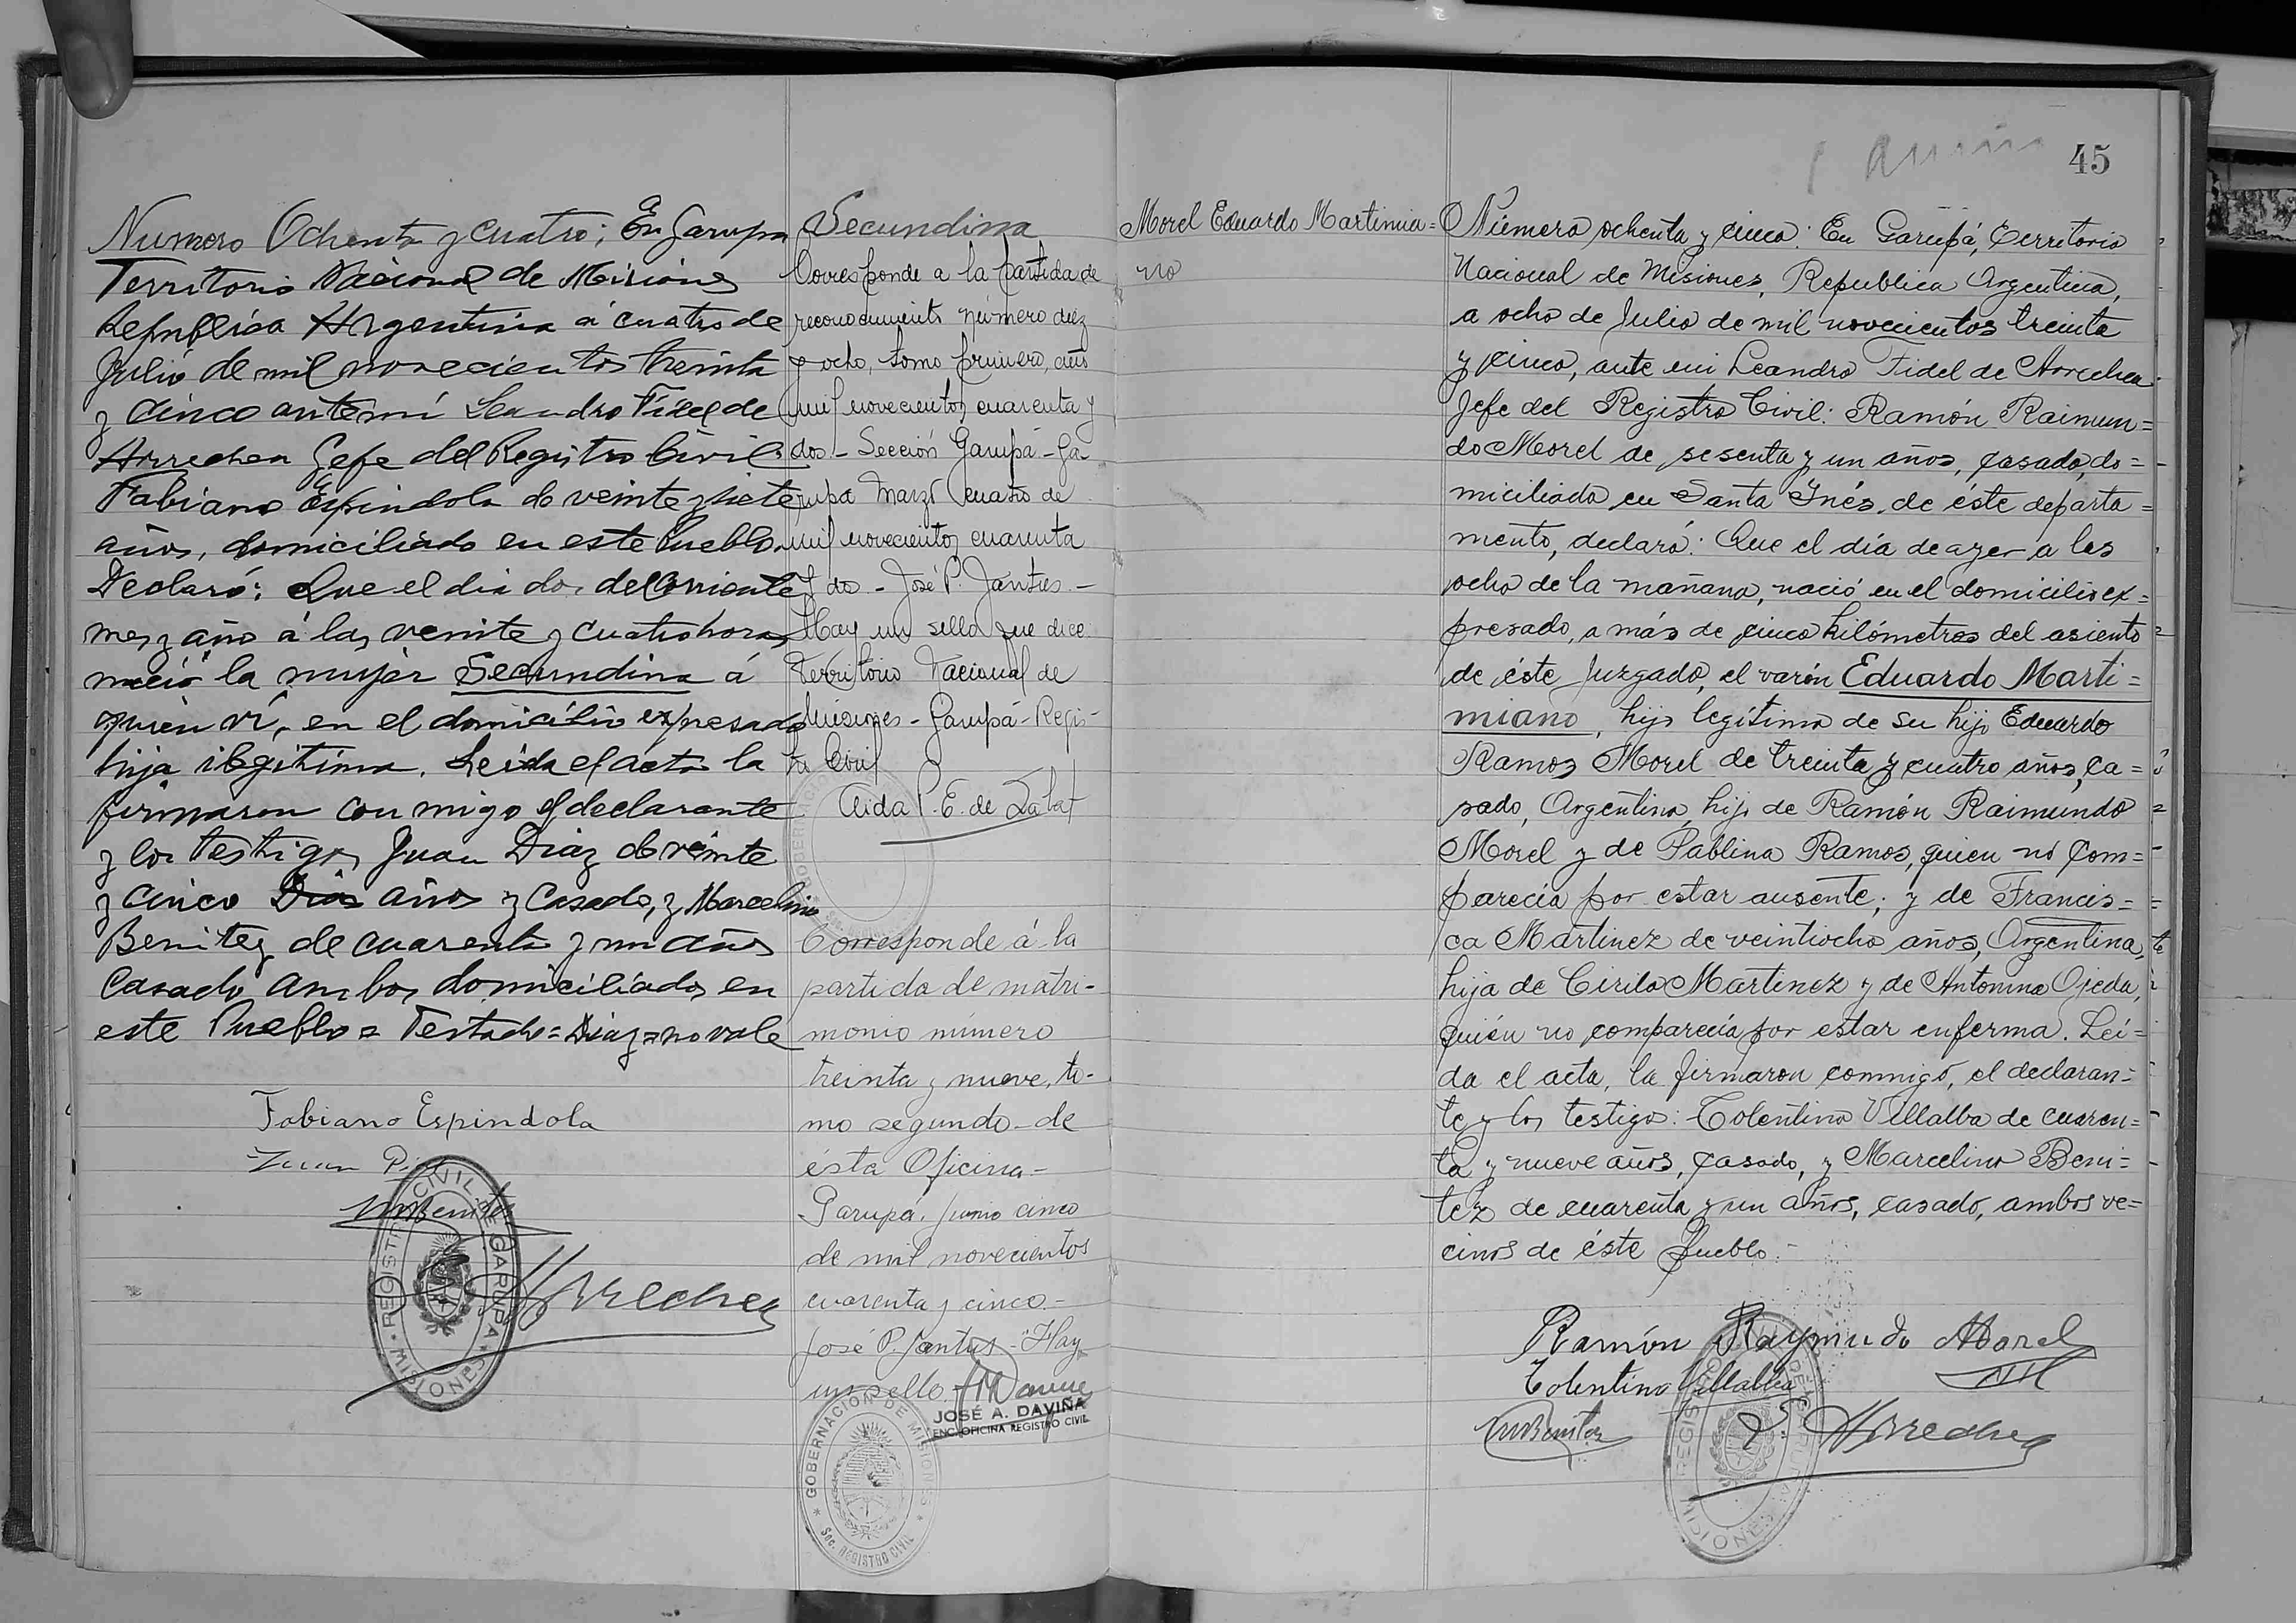 Numero Ochenta y cuatro; En Garupa
Territorio Nacional de Misiones
Republica Argentina á cuatro de
Julio de mil novecientos treinta
y cinco ante mí Leandro Fidel de
Arrechea Gefe del Registro Civil
Fabiano Espindola de veinte y siete
años, domiciliado en este Pueblo
Declaró; Que el dia dos del corriente
mes y año á las veinte y cuatro horas
nació la mujer Secundina á
quien ví, en el domicilio expresado
hija ilegitima. Leida el acta la
firmaron con migo el declarante
y los testigos Juan Diaz de veinte
y cinco Dias años y Casado, y Marcelino
Benitez de cuarenta y un años
Casado ambos domiciliados en
este Pueblo = Testado = Diaz = no vale
Fabiano Espindola
Juan
MBenitez
Arrechea
REGISTRO CIVIL DE GARUPA
MISIONES
Secundina
Corresponde a la partida de
reconocimiento número diez
y ocho, tomo primero, año
mil novecientos cuarenta y
dos - Sección Garupá - Ga-
rupa Marzo cuatro de
mil novecientos cuarenta
y dos - José P. Jantus -
Hay un sello que dice
Territorio Nacional de
Misiones - Garupá - Regis-
tro Civil
Aida P. E. de Labat
Corresponde á la
partida de matri-
monio número
treinta y nueve, to-
mo segundo de
ésta Oficina -
Garupá, junio cinco
de mil novecientos
cuarenta y cinco -
José P. Jantus - Hay
un sello
JOSÉ A. DAVIÑA
ENC. OFICINA REGISTRO CIVIL
GOBERNACION DE MISIONES
Sec. REGISTRO CIVIL
45
Morel Eduardo Martimia=
no
Número ochenta y cinco: En Garupá, Territorio
Nacional de Misiones, Republica Argentina,
a ocho de Julio de mil novecientos treinta
y cinco, ante mi Leandro Fidel de Arrechea
Jefe del Registro Civil: Ramón Raimun=
do Morel de sesenta y un años, casado, do=
miciliado en Santa Inés, de éste departa=
mento, declaró: Que el día de ayer a las
ocho de la mañana, nació en el domicilio ex=
presado, a más de cinco kilómetros del asiento
de éste Juzgado, el varón Eduardo Marti=
miano, hijo legítimo de su hijo Eduardo
Ramos Morel de treinta y cuatro años, ca=
sado, Argentino, hijo de Ramón Raimundo
Morel y de Pablina Ramos, quien no com=
parecía por estar ausente; y de Francis=
ca Martinez de veintiocho años, Argentina,
hija de Cirilo Martinez y de Antonina Ojeda,
quién no comparecía por estar enferma. Leí=
da el acta, la firmaron conmigo, el declaran=
te y los testigo: Tolentino Villalba de cuaren=
ta y nueve años, casado, y Marcelino Beni=
tez de cuarenta y un años, casado, ambos ve=
cinos de éste pueblo.-
Ramón Raymundo Morel
Tolentino Villalba
MBenitez
Arrechea